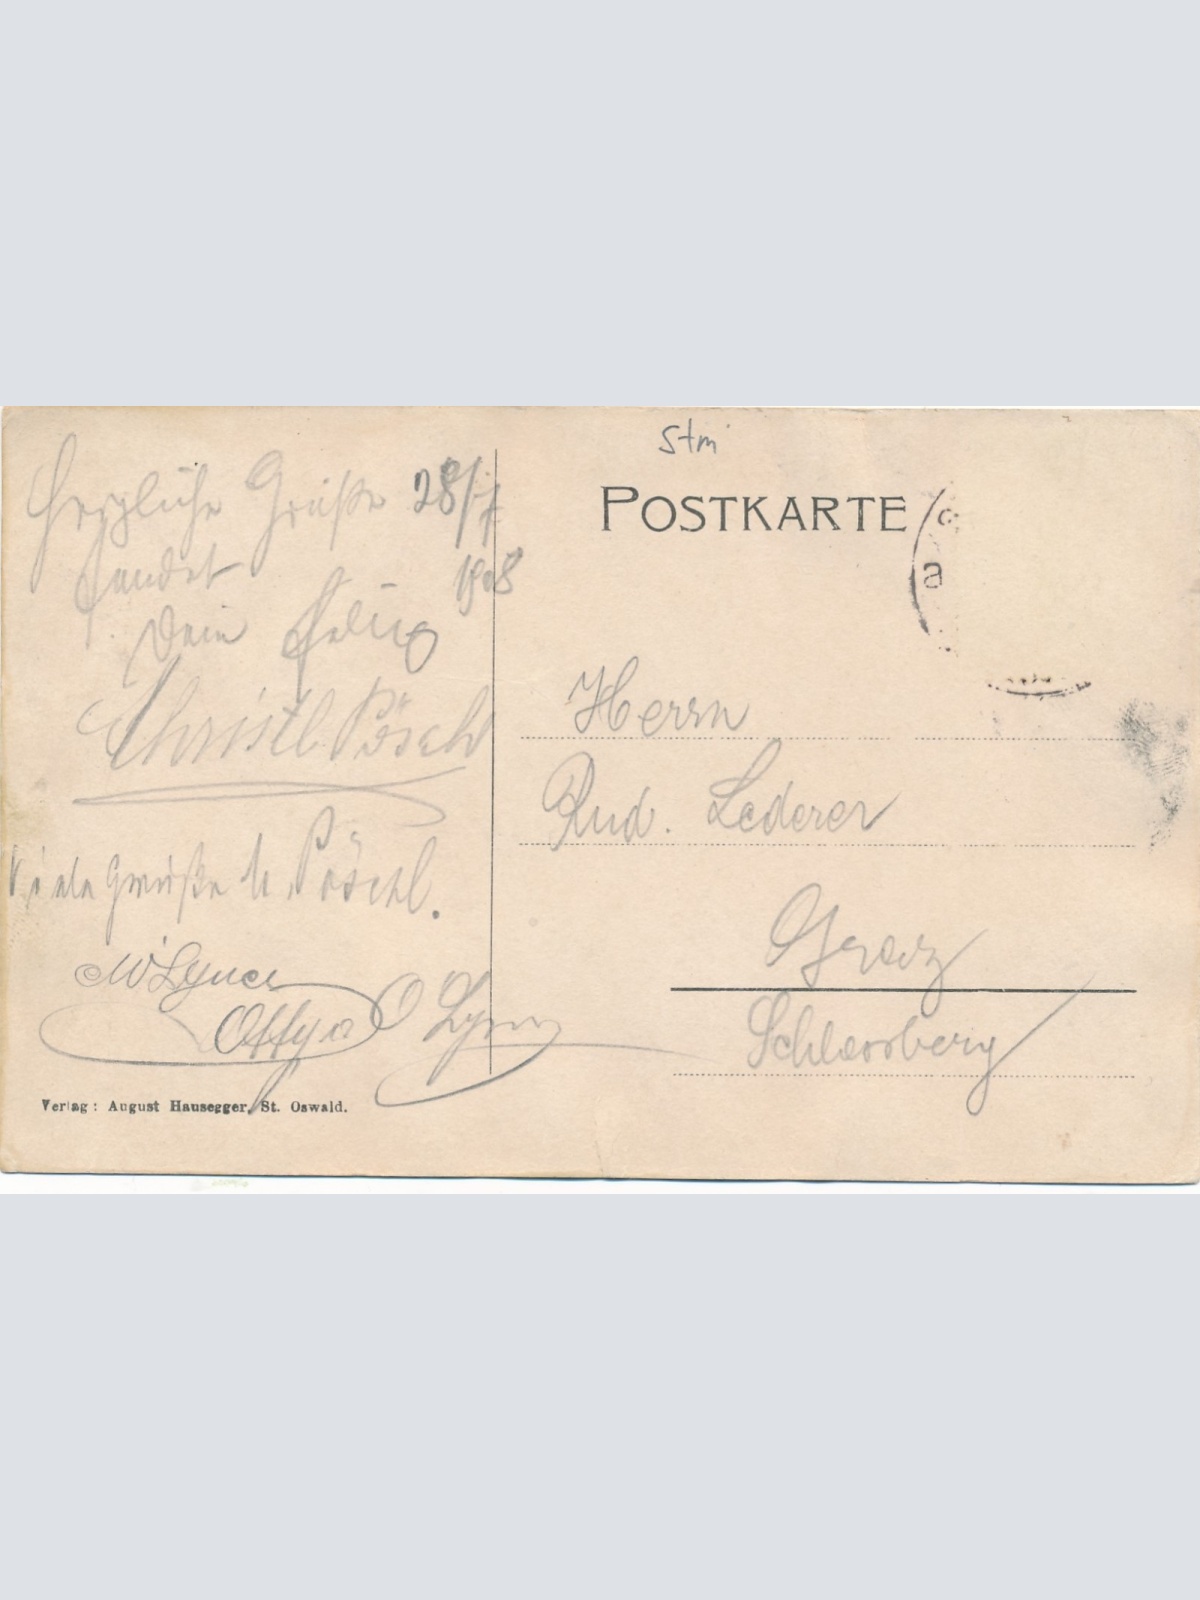 Herzliche Grüße 28/7
sendet 1908
Dein Felix
Christl Pöschl
Viele Grüße M. Pöschl.
Verlag: August Hausegger, St. Oswald.
Stm
POSTKARTE
a
Herrn
Rud. Lederer
Graz
Schlossberg